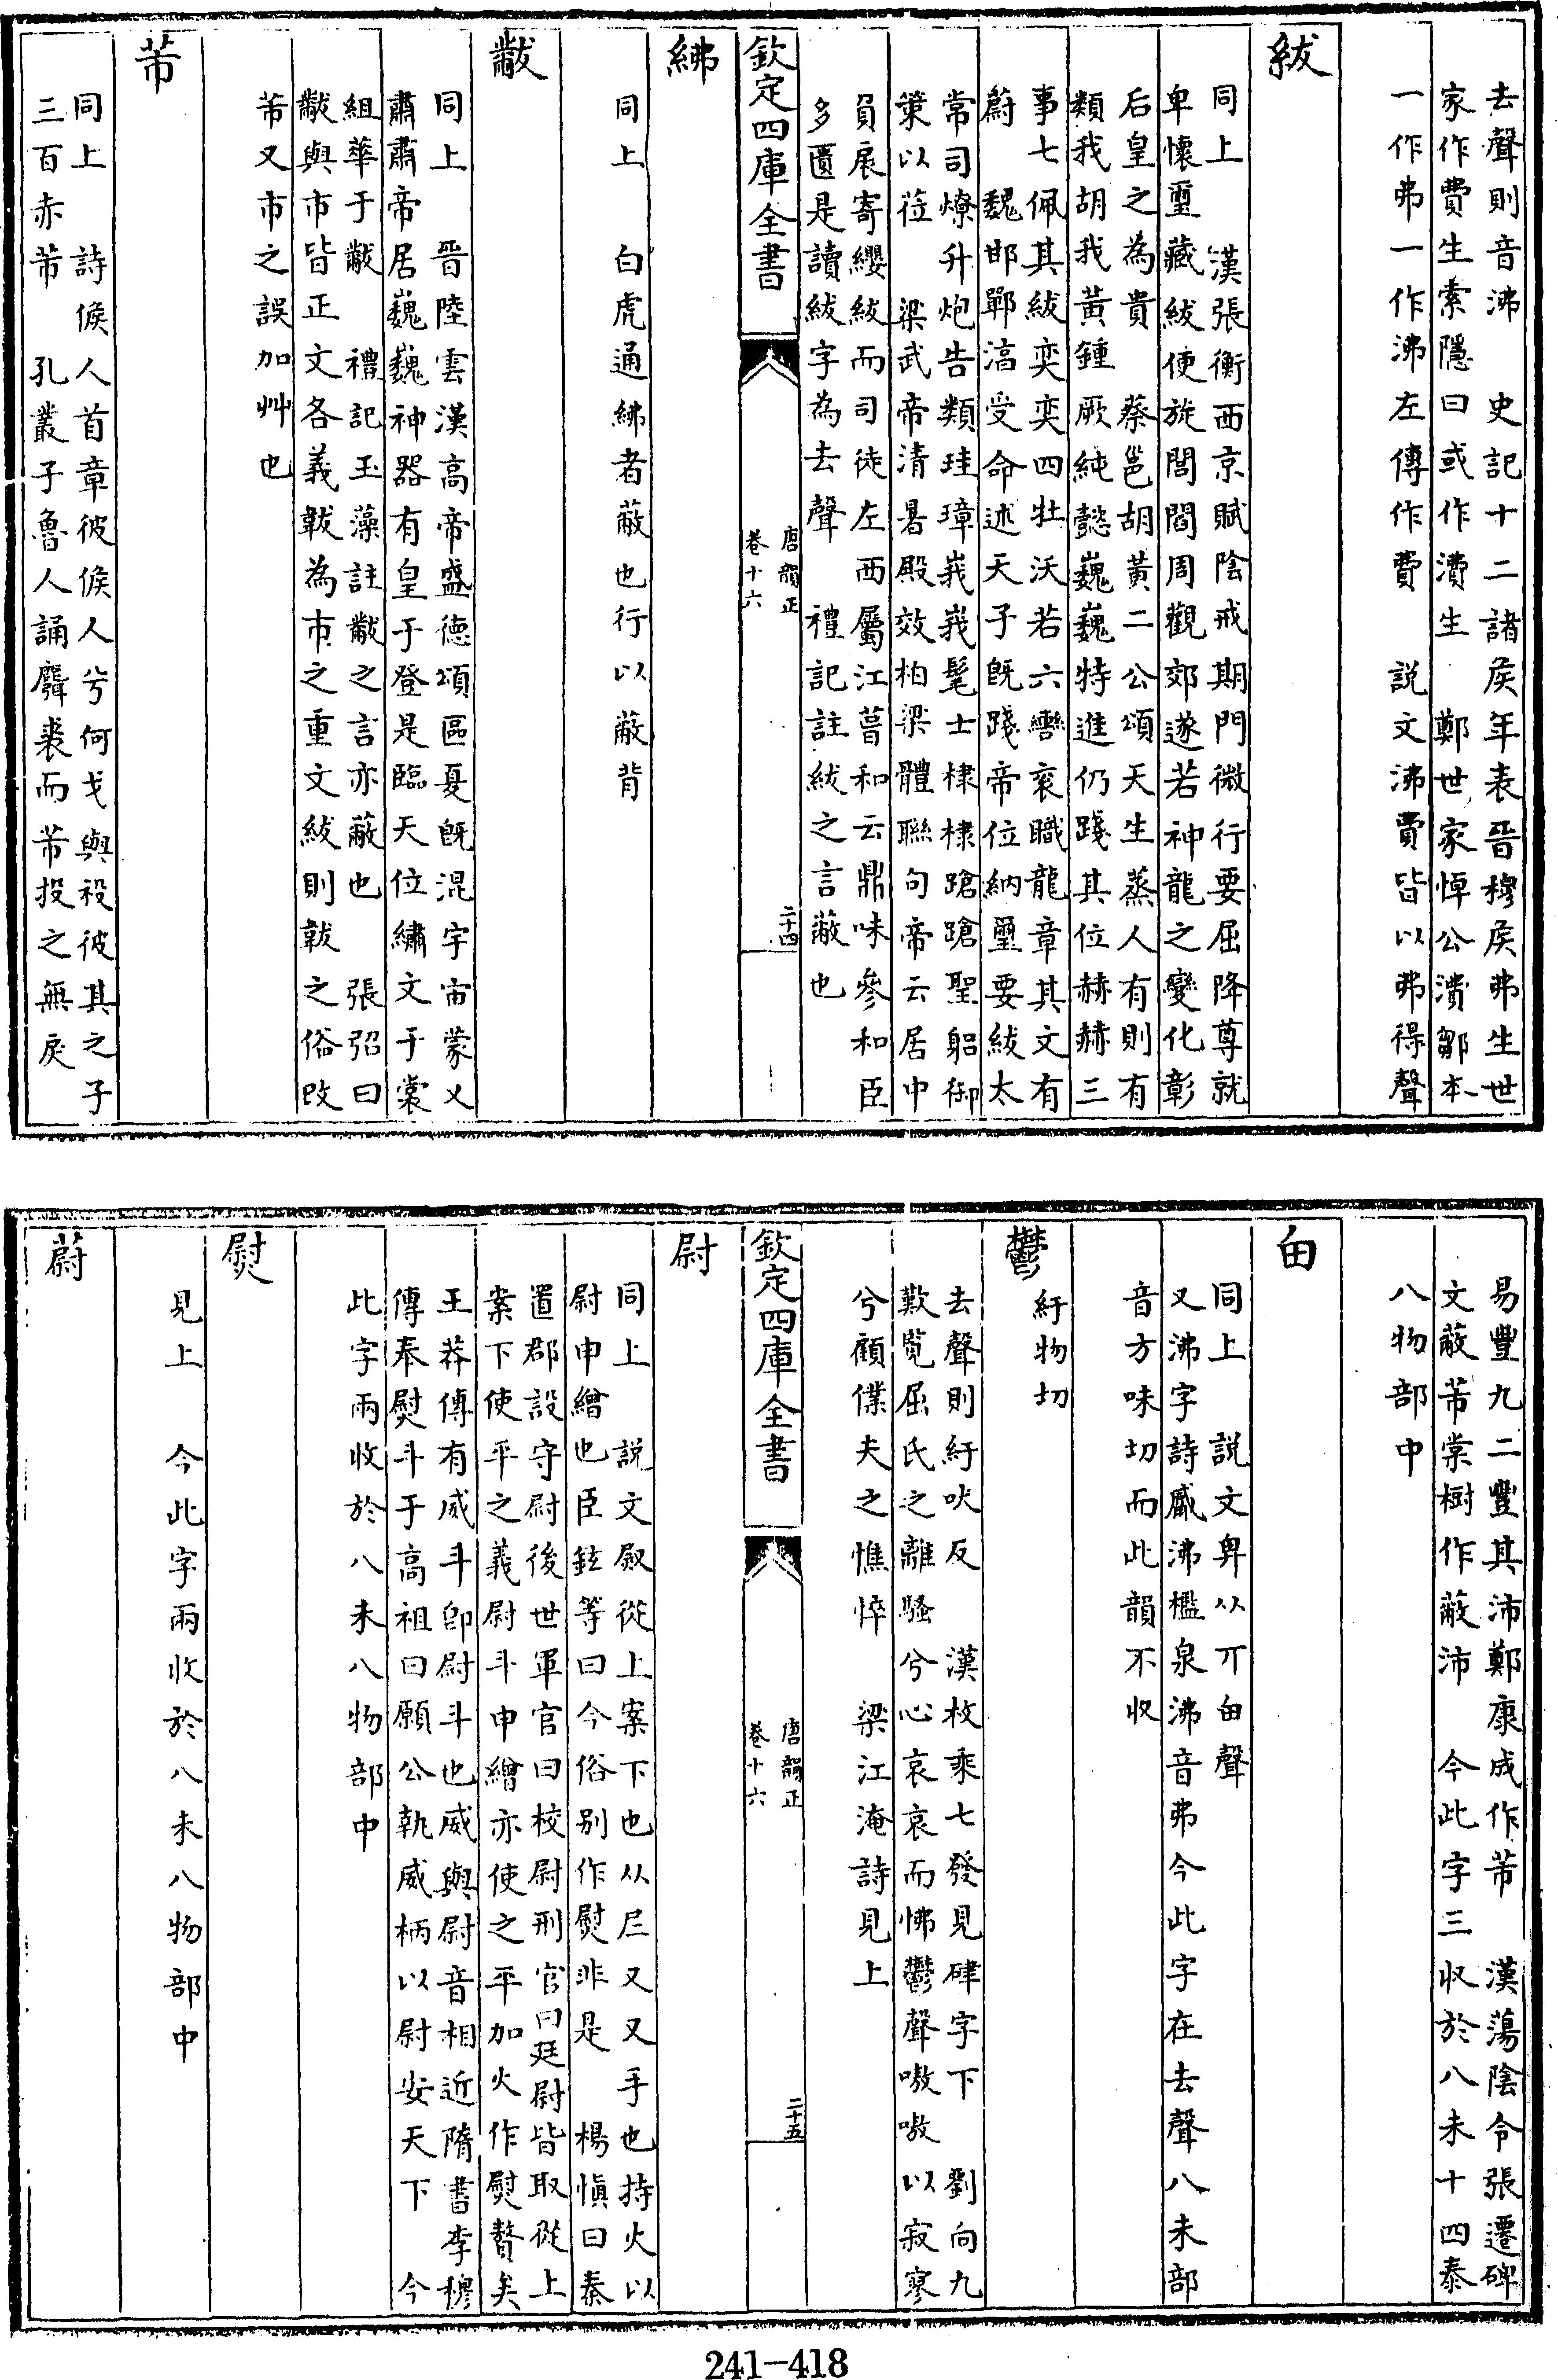 去聲則音沸　史記十二諸侯年表晉穆侯弗生世
家作費生索隱曰或作潰生　鄭世家悼公潰鄒本
一作弗一作沸左傳作費　説文沸費皆以弗得聲
紱
同上　漢張衡西京賦陰戒期門微行要屈降尊就
卑懷璽藏紱便旋閭閻周觀郊遂若神龍之變化彰
后皇之為貴　蔡邕胡黃二公頌天生蒸人有則有
類我胡我黃鍾厥純懿巍巍特進仍踐其位赫赫三
事七佩其紱奕奕四牡沃若六轡衮職龍章其文有
蔚　魏邯鄲湻受命述天子旣踐帝位納璽要紱太
常司燎升炮告類珪璋峩峩髦士棣棣蹌蹌聖躬御
筞以莅　梁武帝清暑殿效柏梁體聯句帝云居中
負扆寄纓紱而司徒左西屬江葺和云鼎味參和臣
多匱是讀紱字為去聲　禮記註紱之言蔽也
欽定四庫全書
唐韻正
卷十六
二十四
紼
同上　白虎通紼者蔽也行以蔽背
黻
同上　晉陸雲漢高帝盛德頌區夏旣混宇宙蒙乂
肅肅帝居巍巍神器有皇于登是臨天位繡文于裳
組華于黻　禮記玉藻註黻之言亦蔽也　張弨曰
黻與巿皆正文各義韍為巿之重文紱則韍之俗改
芾又巿巿之誤加艸也
芾
同上　詩候人首章彼候人兮何戈與祋彼其之子
三百赤芾　孔叢子魯人誦麛裘而芾投之無戾
易豐九二豐其沛鄭康成作芾　漢蕩陰令張遷碑
文蔽芾棠樹作蔽沛　今此字三收於八未十四泰
八物部中
甶
同上　説文畀从丌甶聲
又沸字詩觱沸檻泉沸音弗今此字在去聲八未部
音方味切而此韻不收
鬱
紆物切
去聲則紆吠反　漢枚乘七發見硉字下　劉向九
歎覽屈氏之離騷兮心哀哀而怫鬱聲嗷嗷以寂寥
兮顧僕夫之憔悴　梁江淹詩見上
欽定四庫全書
唐韻正
卷十六
二十五
尉
同上　説文㷉從上案下也从𡰥又又手也持火以
尉申繒也臣鉉等曰今俗别作熨非是　楊愼曰秦
置郡設守尉後世軍官曰校尉刑官曰廷尉皆取從上
案下使平之義尉斗申繒亦使之平加火作熨贅矣
王莽傳有威斗卽尉斗也威與尉音相近隋書李穆
傳奉熨斗于高祖曰願公執威柄以尉安天下　今
此字兩收於八未八物部中
熨
見上　今此字兩收於八未八物部中
蔚
241-418